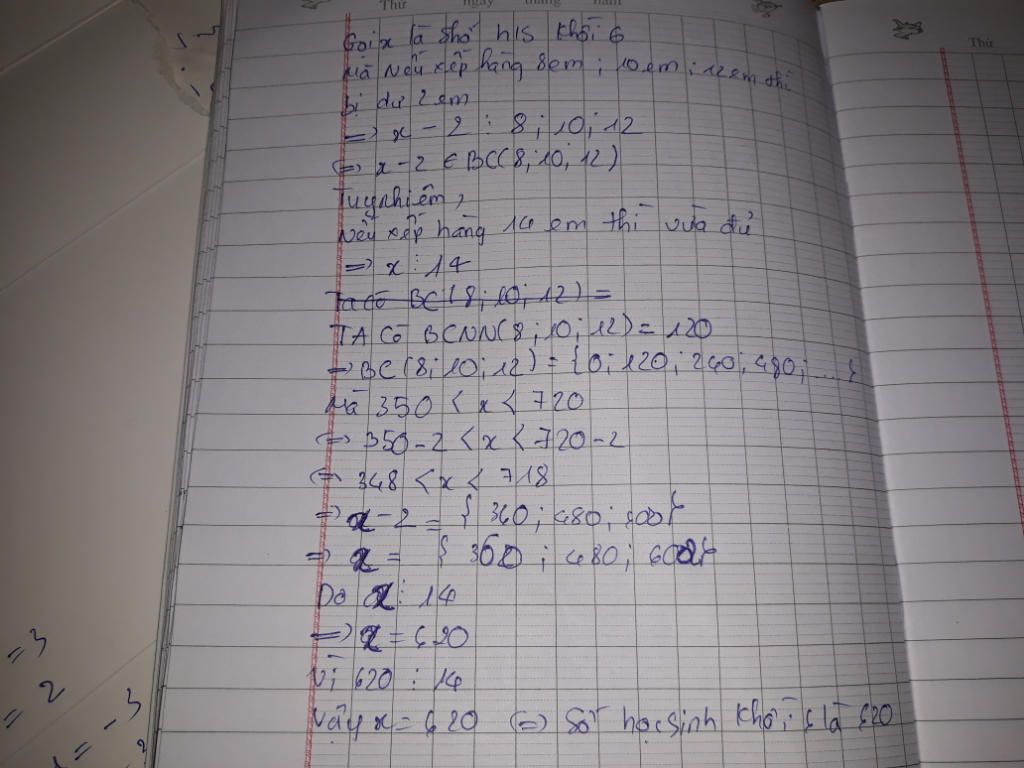 Thứ ngày tháng năm
Gọi x là số h/s khối 6
Mà Nếu xếp hàng 8em ; 10em ; 12em thì
bị dư 2 em
=> x - 2 ⋮ 8 ; 10 ; 12
<=> x - 2 ∈ BC(8 ; 10 ; 12)
Tuy nhiên,
Nếu xếp hàng 14 em thì vừa đủ
=> x ⋮ 14
Ta có BC(8 ; 10 ; 12) =
TA Có BCNN(8 ; 10 ; 12) = 120
=> BC(8 ; 10 ; 12) = {0 ; 120 ; 240 ; 480 ; ... }
Mà 350 < x < 720
<=> 350 - 2 < x < 720 - 2
<=> 348 < x < 718
=> x - 2 = { 360 ; 480 ; 600}
=> x = { ; 480 ; }
Do x ⋮ 14
=> x = 620
Vì 620 ⋮ 14
Vậy x = 620 <=> Số học sinh khối 6 là 620
Thứ
= 3
= 2
= -3